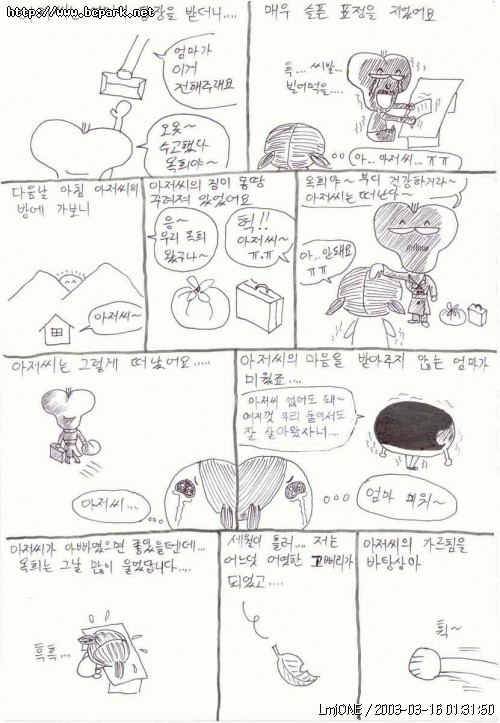 http://www.bcpark.net
장을 받더니....
엄마가
이거
전해주래요
오옷~
수고했다
옥희야~
매우 슬픈 표정을 지었어요
흑... 씨발..
빌어먹을....
아...아저씨... ㅠㅠ
다음날 아침 아저씨의
방에 가보니
아저씨~
아저씨의 짐이 몽땅
꾸려져 있었어요
응~
우리 옥희
왔구나~
헉!!
아저씨~
ㅠ.ㅠ
옥희야~ 부디 건강하거라~
아저씨는 떠난다~
아..안돼요
ㅠㅠ
아저씨는 그렇게 떠났어요.....
아저씨...
아저씨의 마음을 받아주지 않는 엄마가
미웠죠....
아저씨 없어도 돼~
여지껏 우리 둘이서도
잘 살아왔자너....
엄마 미워~
아저씨가 아빠였으면 좋았을텐데...
옥희는 그날 많이 울었답니다....
흑흑....
세월이 흘러... 저는
어느덧 어엿한 고삐리가
되었고....
아저씨의 가르침을
바탕삼아
휙~
LmjONE / 2003-03-16 01:31:50